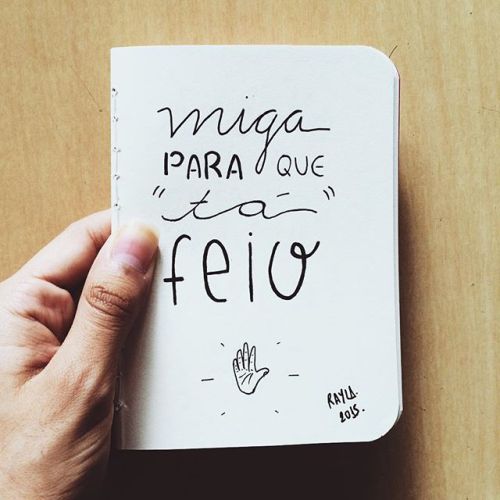 miga
PARA QUE
"tá"
feio
RAYLA.
2015.